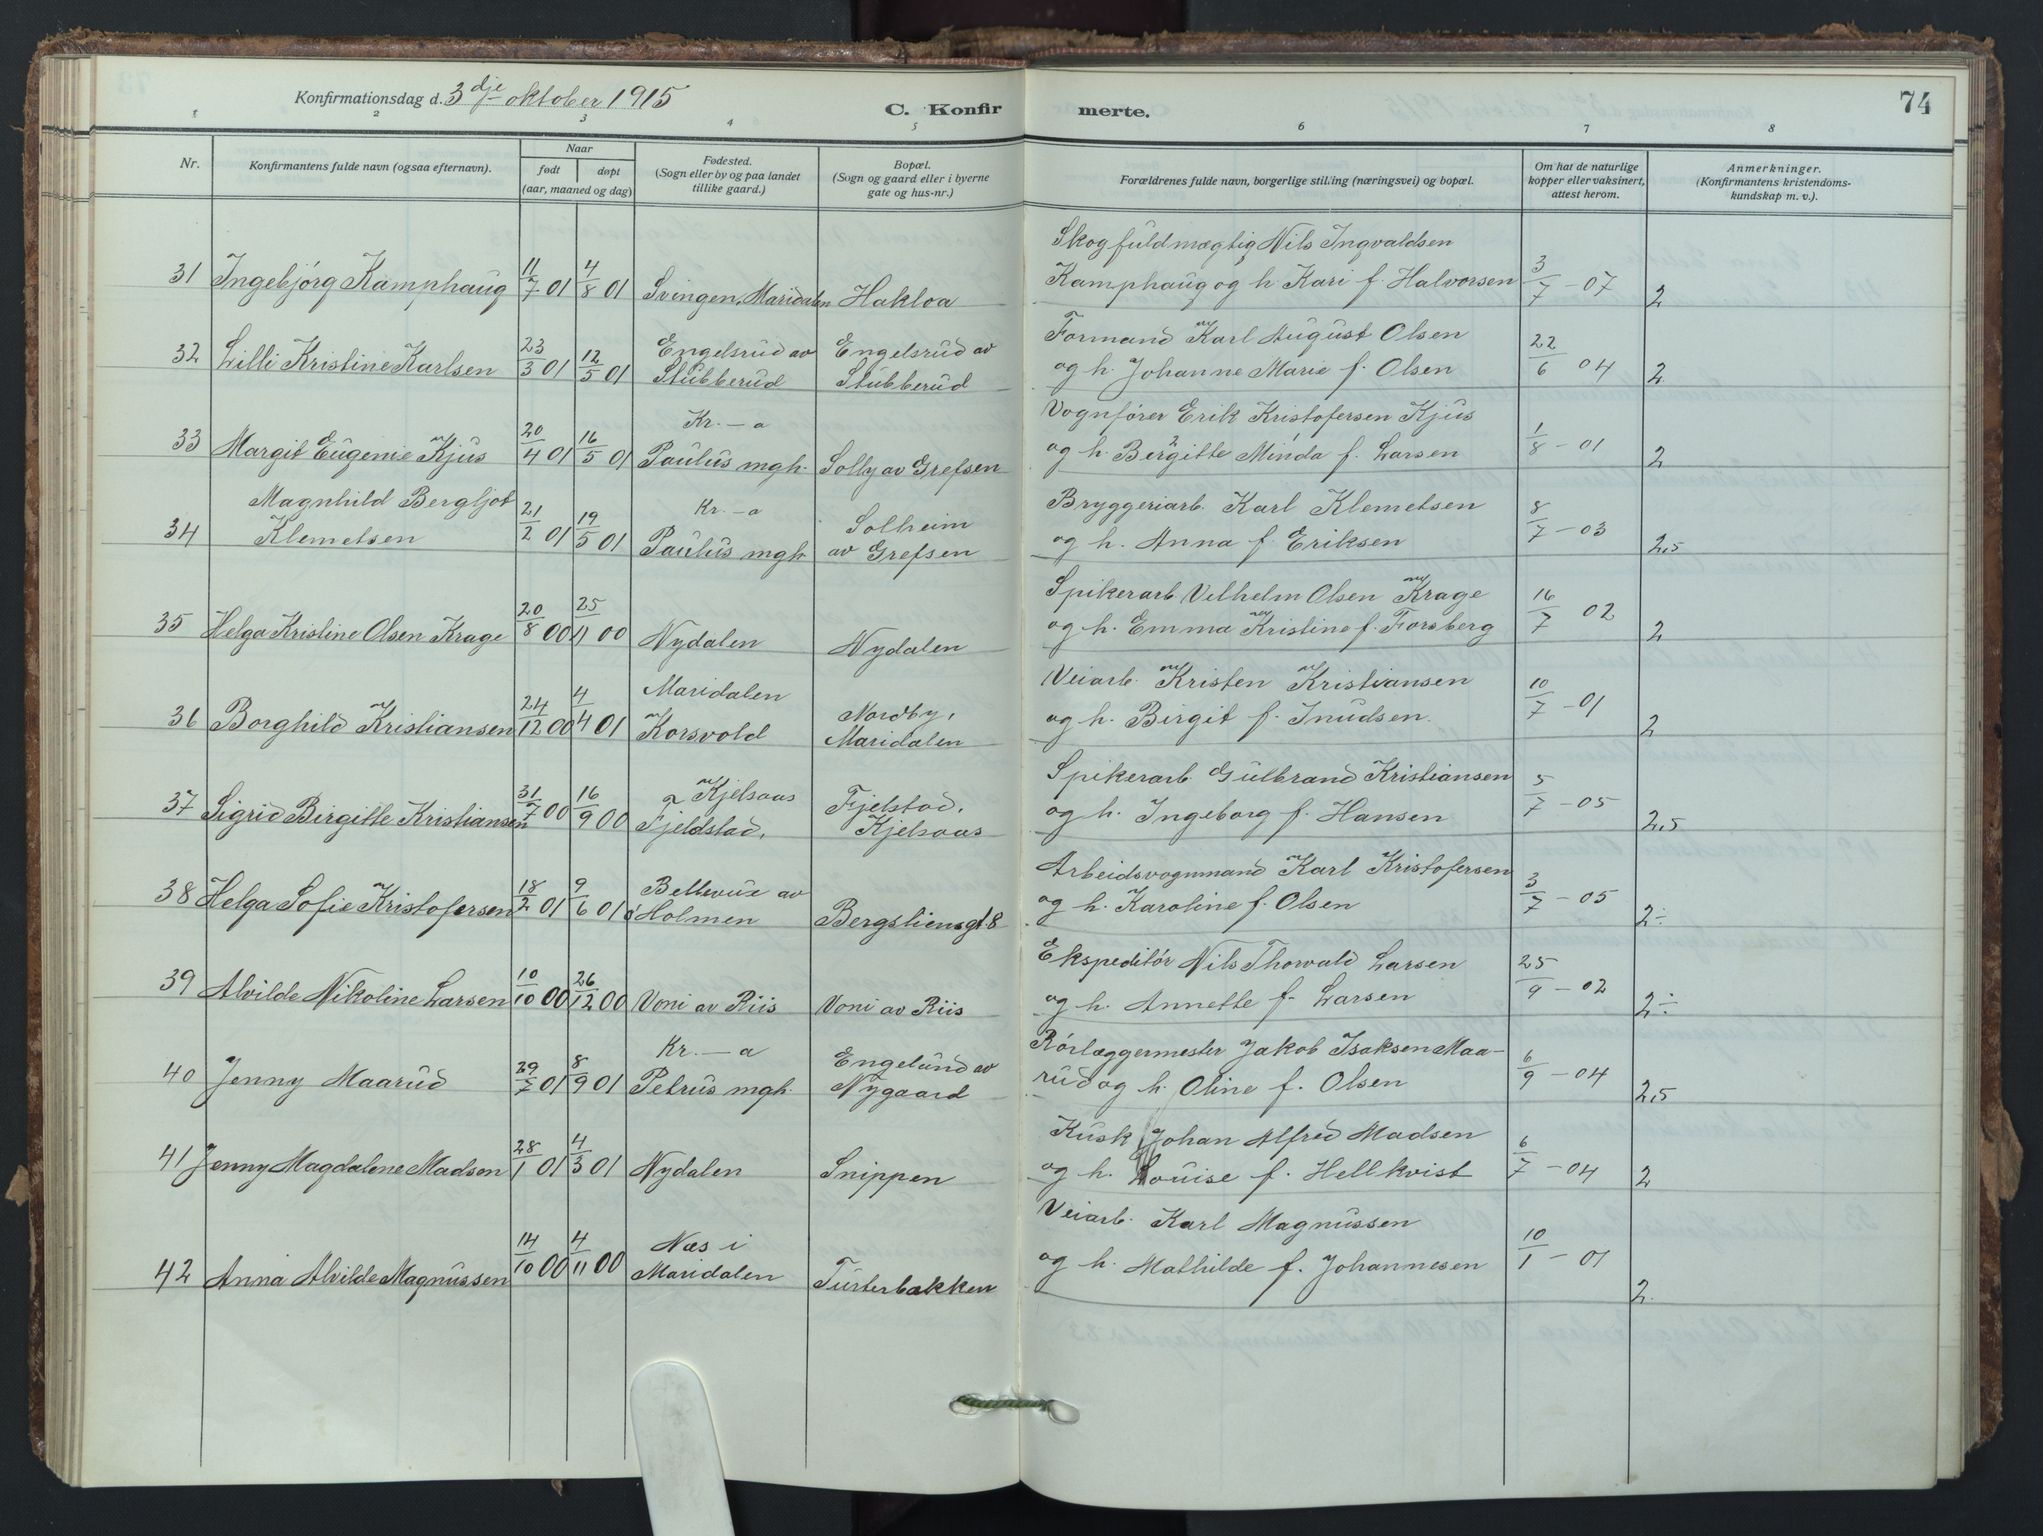 Konfirmationsdag d. 3dje oktober 1915
C. Konfirmerte.
74
1 2 3 4 5 6 7 8
Nr.
Konfirmantens fulde navn (ogsaa efternavn).
Naar
født døpt
(aar, maaned og dag)
Fødested.
(Sogn eller by og paa landet
tillike gaard.)
Bopæl.
(Sogn og gaard eller i byerne
gate og hus-nr.)
Forældrenes fulde navn, borgerlige stilling (næringsvei) og bopæl.
Om hat de naturlige
kopper eller vaksinert,
attest herom.
Anmerkninger.
(Konfirmantens kristendoms-
kundskap m. v.).
Skogfuldmægtig Nils Ingvaldsen
31 Ingebjörg Kamphaug 11/7 01 4/8 01 Svingen, Maridalen Hakloa Kamphaug og h. Kari f. Halvorsen 3/7 - 07 2
Engelsrud av Engelsrud av Formand Karl August Olsen
32 Lilli Kristine Karlsen 23/3 01 12/5 01 Stubberud Stubberud og h. Johanne Marie f. Olsen 22/6 04 2
Kr. - a Vognfører Erik Kristofersen Kjus
33 Margit Eugenie Kjus 20/4 01 16/5 01 Paulus mgh. Solly av Grefsen og h. Bergitte Minda f. Larsen 1/8 - 01 2
Magnhild Bergljot Kr. - a Solheim Bryggeriarb. Karl Klemetsen
34 Klemetsen 21/2 01 19/5 01 Paulus mgh. av Grefsen og h. Anna f. Eriksen 8/7 - 03 2,5
Spikerarb. Vilhelm Olsen Krage
35 Helga Kristine Olsen Krage 20/8 00 25/11 00 Nydalen Nydalen og h. Emma Kristine f. Forsberg 16/7 02 2
Maridalen Nordby, Veiarb. Kristen Kristiansen
36 Borghild Kristiansen 24/12 00 4/4 01 Korsvold Maridalen og h. Birgit f. Knudsen. 10/7 - 01 2
Kjelsaas Fjelstad, Spikerarb. Gulbrand Kristiansen
37 Sigrid Birgitte Kristiansen 31/7 00 16/9 00 Fjeldstad, Kjelsaas og h. Ingeborg f. Hansen 5/7 - 05 2,5
Bellevue av Arbeidsvognmand Karl Kristofersen
38 Helga Sofie Kristofersen 18/2 01 9/6 01 Holmen Bergsliensgt 8 og h. Karoline f. Olsen 3/7 - 05 2÷
Ekspeditör Nils Thorvald Larsen
39 Alvilde Nikoline Larsen 10/10 00 26/12 00 Voni av Riis Voni av Riis og h. Annette f. Larsen 25/9 - 02 2÷
Kr. - a Engelund av Rörlæggermester Jakob Isaksen Maa-
40 Jenny Maarud 29/7 01 8/9 01 Petrus mgh. Nygaard rud og h. Oline f. Olsen 6/9 - 04 2,5
Kusk Johan Alfred Madsen
41 Jenny Magdalene Madsen 28/1 01 4/3 01 Nydalen Snippen og h. Louise f. Hellkvist 6/7 - 04 2
Næs i Veiarb. Karl Magnussen
42 Anna Alvilde Magnussen 14/10 00 4/11 00 Maridalen Turterbakken og h. Mathilde f. Johannesen 10/1 - 01 2.